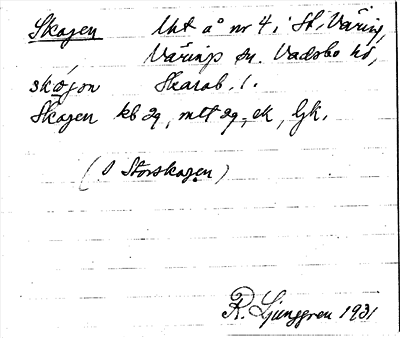 Skagen Utt å nr 4 i St. Väring,
Värings sn. Vadsbo hd,
skøgon Skarab. l.
Skagen kb 29, mtt 29, ek, Gk.
(S Storskagen)
R. Ljunggren 1931